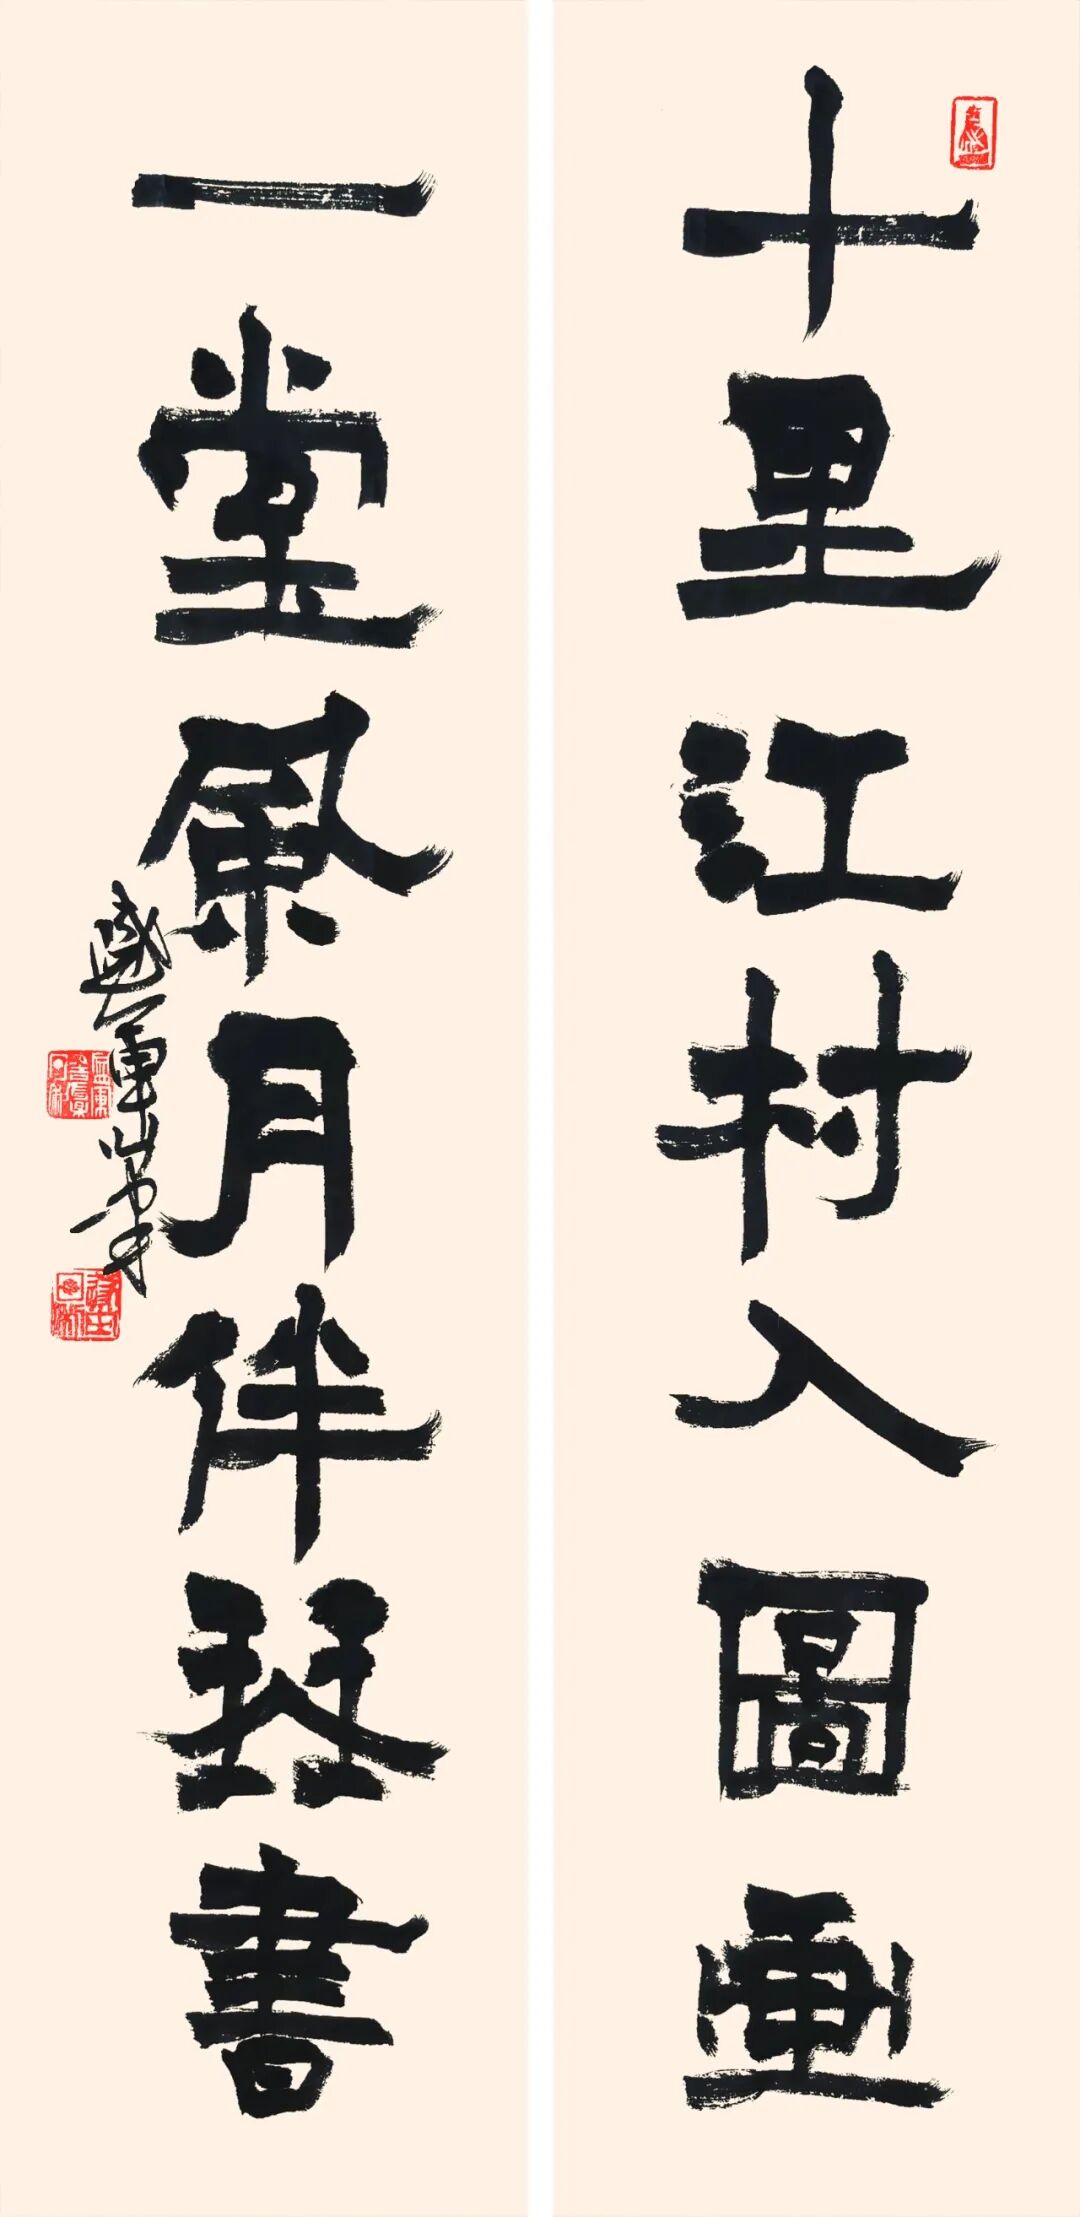 十里江村入圖畫
一堂風月伴琴書
盛軍筆